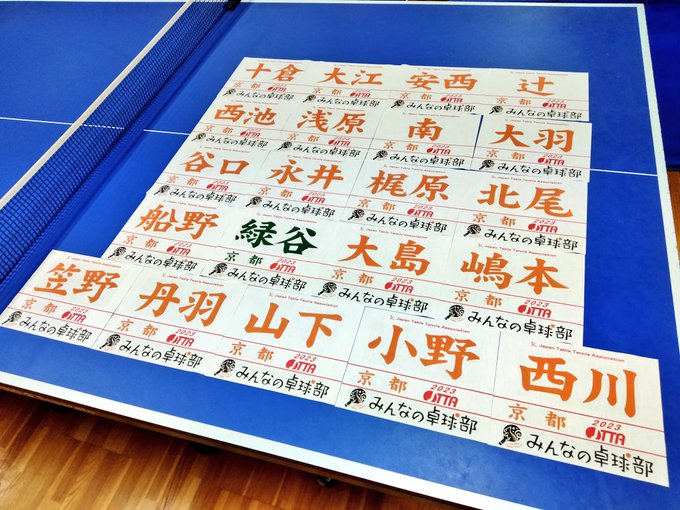 十倉 大江 安西 辻
京都 2023 JTTA 京都 2023 JTTA 京都 2023 JTTA 京都 2023 JTTA
みんなの卓球部 みんなの卓球部 みんなの卓球部 みんなの卓球部
西池 浅原 南 大羽
京都 2023 JTTA 京都 2023 JTTA 京都 2023 JTTA 京都 2023 JTTA
みんなの卓球部 みんなの卓球部 みんなの卓球部 みんなの卓球部
谷口 永井 梶原 北尾
京都 2023 JTTA 京都 2023 JTTA 京都 2023 JTTA 京都 2023 JTTA
みんなの卓球部 みんなの卓球部 みんなの卓球部 みんなの卓球部
Japan Table Tennis Association
船野 緑谷 大島 嶋本
京都 2023 JTTA 京都 2023 JTTA 京都 2023 JTTA 京都 2023 JTTA
みんなの卓球部 みんなの卓球部 みんなの卓球部 みんなの卓球部
Japan Table Tennis Association Japan Table Tennis Association Japan Table Tennis Association Japan Table Tennis Association
笠野 丹羽 山下 小野 西川
京都 2023 JTTA 京都 2023 JTTA 京都 2023 JTTA 京都 2023 JTTA 京都 2023 JTTA
みんなの卓球部 みんなの卓球部 みんなの卓球部 みんなの卓球部 みんなの卓球部